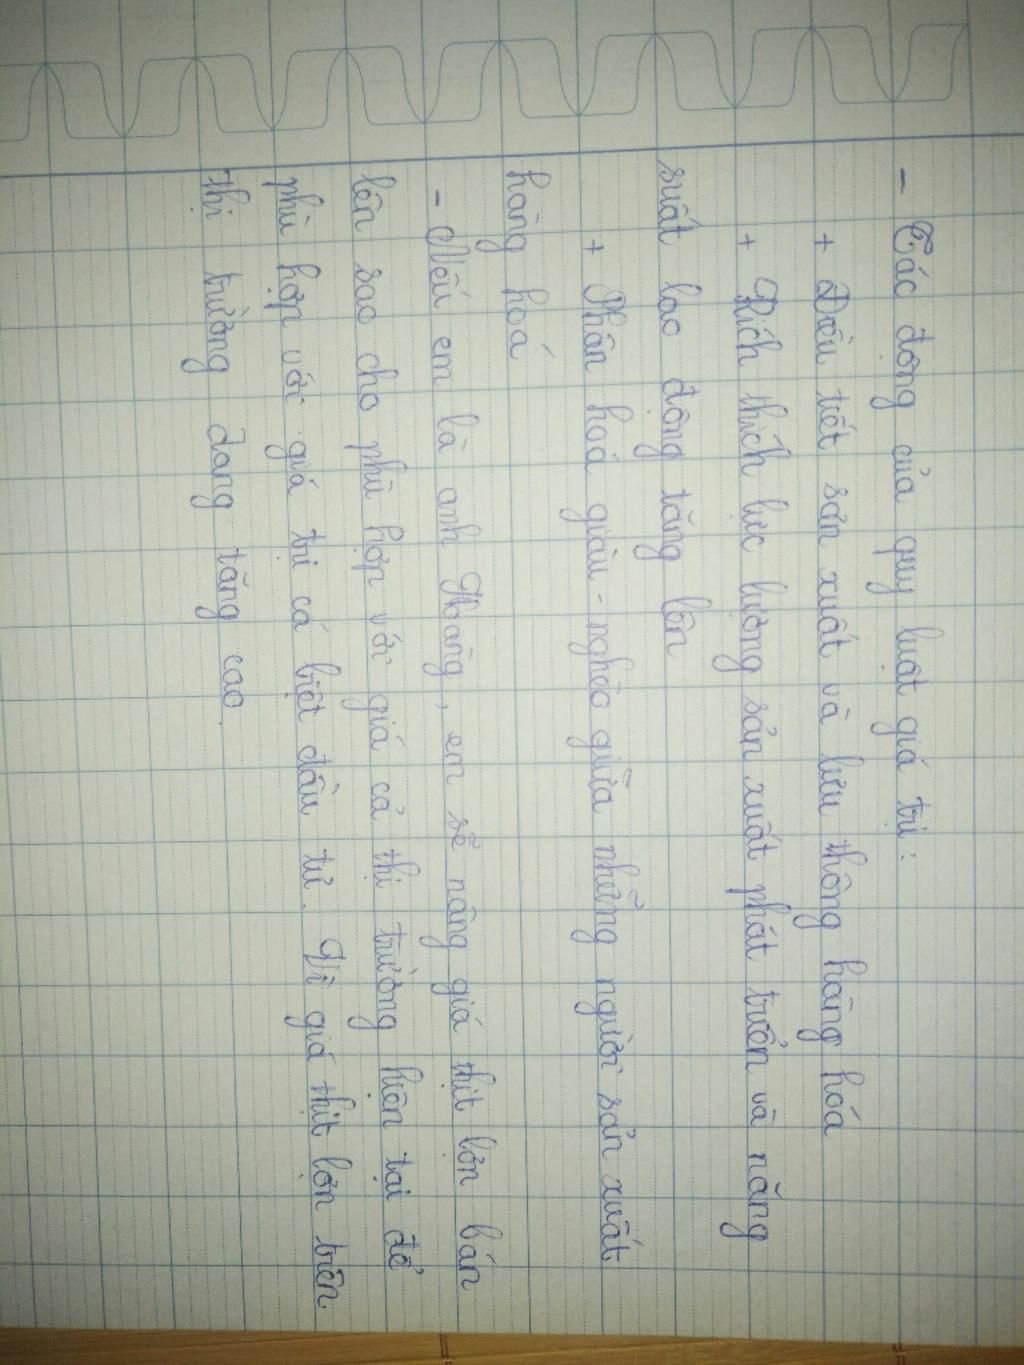 - Tác động của quy luật giá trị:
+ Điều tiết sản xuất và lưu thông hàng hóa
+ Kích thích lực lượng sản xuất phát triển và năng
suất lao động tăng lên
+ Phân hoá giàu - nghèo giữa những người sản xuất
hàng hoá
- Nếu em là anh Hoàng, em sẽ nâng giá thịt lợn bán
lên sao cho phù hợp với giá cả thị trường hiện tại để
phù hợp với giá trị cá biệt đầu tư. Vì giá thịt lợn trên
thị trường đang tăng cao.